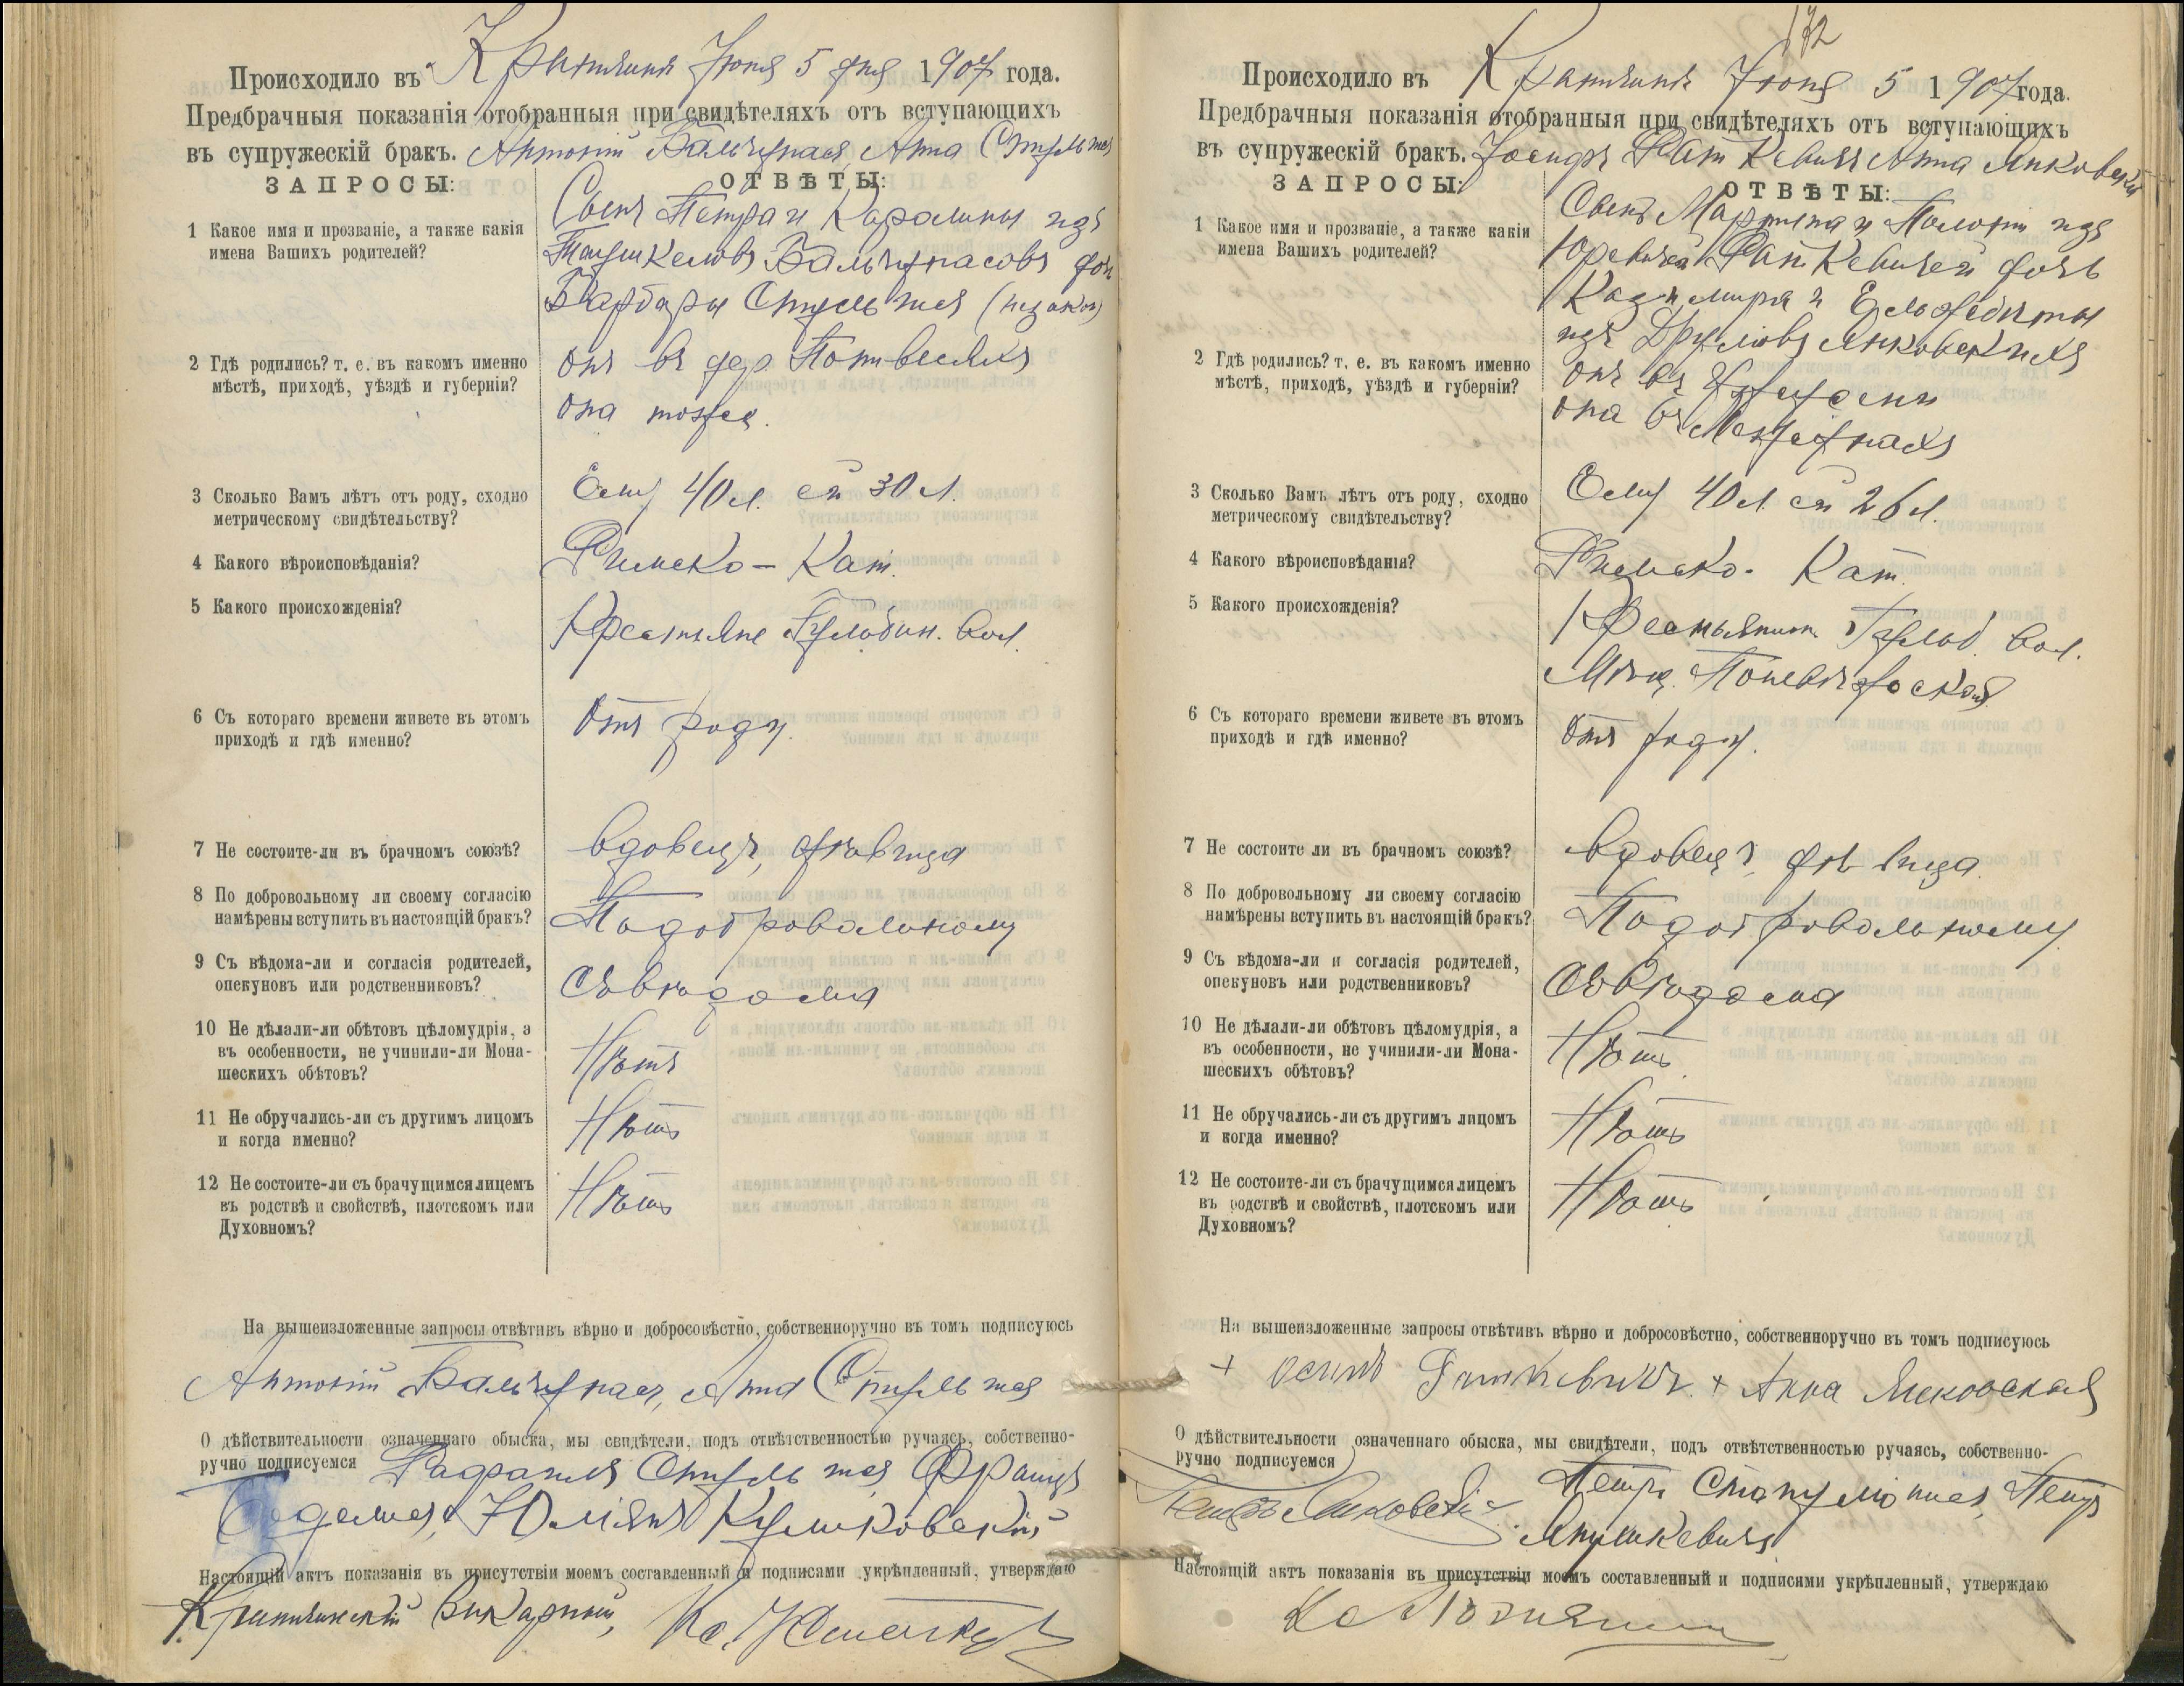 Происходило въ Кратишки Іюня 5 дня 1907 года.
Предбрачныя показанія отобранныя при свидѣтеляхъ отъ вступающихъ
въ супружескій бракъ. Антоній Бальчунасъ, Анна
ЗАПРОСЫ: ОТВѢТЫ:
1 Какое имя и прозваніе, а также какія
имена Вашихъ родителей?
Сынъ Петра и Каролины изъ
Бальчунасовъ дочь
Барбары (незакон)
2 Гдѣ родились? т. е. въ какомъ именно
мѣстѣ, приходѣ, уѣздѣ и губерніи?
онъ въ дер.
она тоже.
3 Сколько Вамъ лѣтъ отъ роду, сходно
метрическому свидѣтельству?
Ему 40 л. ей 30 л.
4 Какого вѣроисповѣданія?
Римско-Кат.
5 Какого происхожденія?
Крестьяне Гульбин. вол.
6 Съ котораго времени живете въ этомъ
приходѣ и гдѣ именно?
Отъ роду.
7 Не состоите-ли въ брачномъ союзѣ?
вдовецъ, дѣвица
8 По добровольному ли своему согласію
намѣрены вступить въ настоящій бракъ?
По добровольному
9 Съ вѣдома-ли и согласія родителей,
опекуновъ или родственниковъ?
Съ вѣдома
10 Не дѣлали-ли обѣтовъ цѣломудрія, а
въ особенности, не учинили-ли Мона-
шескихъ обѣтовъ?
Нѣтъ
11 Не обручались-ли съ другимъ лицомъ
и когда именно?
Нѣтъ
12 Не состоите-ли съ брачущимся лицемъ
въ родствѣ и свойствѣ, плотскомъ или
Духовномъ?
Нѣтъ
На вышеизложенные запросы отвѣтивъ вѣрно и добросовѣстно, собственноручно въ томъ подписуюсь
Антоній Бальчунасъ, Анна
О дѣйствительности означеннаго обыска, мы свидѣтели, подъ отвѣтственностью ручаясь, собственно-
ручно подписуемся Рафаилъ Францъ
Юліянъ Куликовскій
Настоящій актъ показанія въ присутствіи моемъ составленный и подписами укрѣпленный, утверждаю
Викарный, Кс.
172
Происходило въ Кратишки Іюня 5 1907 года.
Предбрачныя показанія отобранныя при свидѣтеляхъ отъ вступающихъ
въ супружескій бракъ. Іосифъ Анна Янковская
ЗАПРОСЫ: ОТВѢТЫ:
1 Какое имя и прозваніе, а также какія
имена Вашихъ родителей?
Сынъ Мартина и изъ
дочь
Казимира и Ельжбеты
изъ Янковскихъ
2 Гдѣ родились? т. е. въ какомъ именно
мѣстѣ, приходѣ, уѣздѣ и губерніи?
онъ въ
она въ
3 Сколько Вамъ лѣтъ отъ роду, сходно
метрическому свидѣтельству?
Ему 40 л. ей 26 л.
4 Какого вѣроисповѣданія?
Римско-Кат.
5 Какого происхожденія?
Крестьянинъ Гульб. вол.
Мѣщ. Поневѣжская
6 Съ котораго времени живете въ этомъ
приходѣ и гдѣ именно?
Отъ роду.
7 Не состоите ли въ брачномъ союзѣ?
вдовецъ, дѣвица.
8 По добровольному ли своему согласію
намѣрены вступить въ настоящій бракъ?
По добровольному
9 Съ вѣдома-ли и согласія родителей,
опекуновъ или родственниковъ?
Съ вѣдома
10 Не дѣлали-ли обѣтовъ цѣломудрія, а
въ особенности, не учинили-ли Мона-
шескихъ обѣтовъ?
Нѣтъ
11 Не обручались-ли съ другимъ лицомъ
и когда именно?
Нѣтъ
12 Не состоите-ли съ брачущимся лицемъ
въ родствѣ и свойствѣ, плотскомъ или
Духовномъ?
Нѣтъ
На вышеизложенные запросы отвѣтивъ вѣрно и добросовѣстно, собственноручно въ томъ подписуюсь
+ Осипъ + Анна Янковская
О дѣйствительности означеннаго обыска, мы свидѣтели, подъ отвѣтственностью ручаясь, собственно-
ручно подписуемся
Петръ Петръ
Янушкевичъ
Настоящій актъ показанія въ присутствіи моемъ составленный и подписями укрѣпленный, утверждаю
Кс.